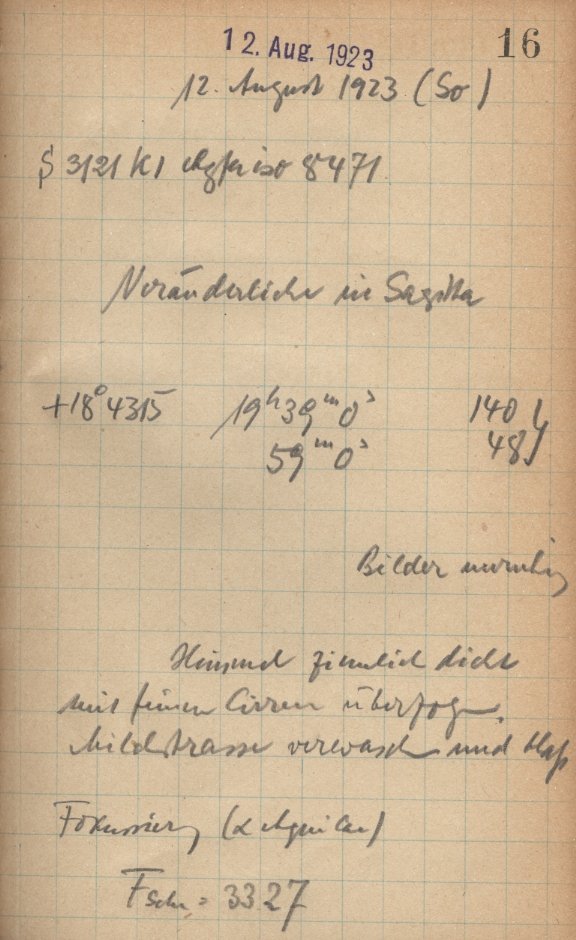 16
12. Aug. 1923
12. August 1923 (So)
S 3121 K1 Agfa iso 8471
Veränderliche in Sagitta
+18° 4315 19ʰ39ᵐ0ˢ 140
59ᵐ0ˢ 48
Bilder unruhig
Himmel ziemlich dicht
mit feinen Cirren überzogen.
Milchstrasse verwaschen und blaß
Fokussierung (α Aquilae)
F = 3327